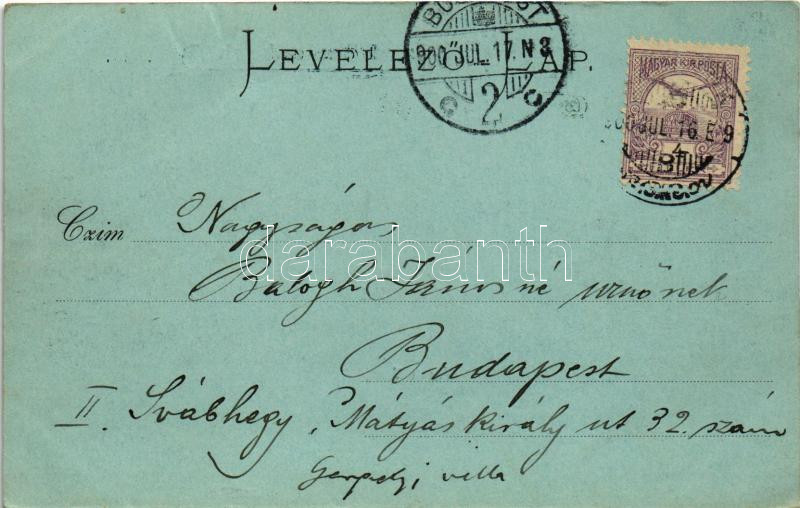 LEVELEZŐ LAP.
BUDAPEST
900 JUL. 17. N 8
2
MAGYAR KIR. POSTA
900 JUL. 16. E 9
Czim Nagyságos
darabanth
Balogh Jánosné urnőnek
Budapest
II. Svábhegy, Mátyás király ut 32. szám
villa